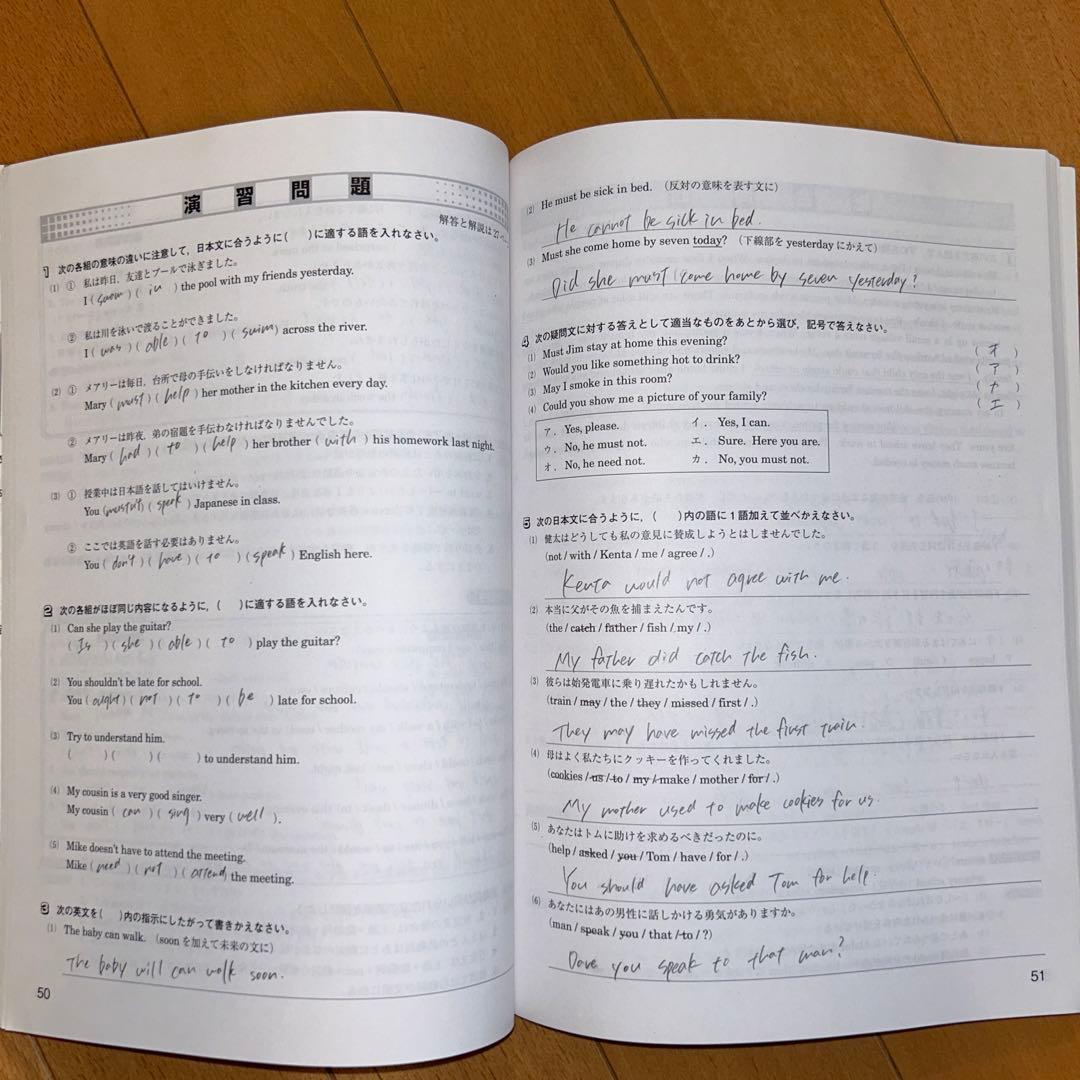 演習問題
解答と解説は27
1 次の各組の意味の違いに注意して，日本文に合うように(　)に適する語を入れなさい。
(1) ① 私は昨日，友達とプールで泳ぎました。
I ( swam )( in ) the pool with my friends yesterday.
② 私は川を泳いで渡ることができました。
I ( was )( able )( to )( swim ) across the river.
(2) ① メアリーは毎日，台所で母の手伝いをしなければなりません。
Mary ( must )( help ) her mother in the kitchen every day.
② メアリーは昨夜，弟の宿題を手伝わなければなりませんでした。
Mary ( had )( to )( help ) her brother ( with ) his homework last night.
(3) ① 授業中は日本語を話してはいけません。
You ( mustn't )( speak ) Japanese in class.
② ここでは英語を話す必要はありません。
You ( don't )( have )( to )( speak ) English here.
2 次の各組がほぼ同じ内容になるように，(　)に適する語を入れなさい。
(1) Can she play the guitar?
( Is )( she )( able )( to ) play the guitar?
(2) You shouldn't be late for school.
You ( ought )( not )( to )( be ) late for school.
(3) Try to understand him.
(　)(　)(　) to understand him.
(4) My cousin is a very good singer.
My cousin ( can )( sing ) very ( well ).
(5) Mike doesn't have to attend the meeting.
Mike ( need )( not )( attend ) the meeting.
3 次の英文を(　)内の指示にしたがって書きかえなさい。
(1) The baby can walk.　(soonを加えて未来の文に)
The baby will can walk soon.
50
(2) He must be sick in bed.　(反対の意味を表す文に)
He cannot be sick in bed.
(3) Must she come home by seven today?　(下線部を yesterday にかえて)
Did she must come home by seven yesterday?
4 次の疑問文に対する答えとして適当なものをあとから選び，記号で答えなさい。
(1) Must Jim stay at home this evening? ( オ )
(2) Would you like something hot to drink? ( ア )
(3) May I smoke in this room? ( カ )
(4) Could you show me a picture of your family? ( エ )
ア． Yes, please.　イ． Yes, I can.
ウ． No, he must not.　エ． Sure. Here you are.
オ． No, he need not.　カ． No, you must not.
5 次の日本文に合うように，(　)内の語に1語加えて並べかえなさい。
(1) 健太はどうしても私の意見に賛成しようとはしませんでした。
(not / with / Kenta / me / agree / .)
Kenta would not agree with me.
(2) 本当に父がその魚を捕まえたんです。
(the / catch / father / fish / my / .)
My father did catch the fish.
(3) 彼らは始発電車に乗り遅れたかもしれません。
(train / may / the / they / missed / first / .)
They may have missed the first train.
(4) 母はよく私たちにクッキーを作ってくれました。
(cookies / us / to / my / make / mother / for / .)
My mother used to make cookies for us.
(5) あなたはトムに助けを求めるべきだったのに。
(help / asked / you / Tom / have / for / .)
You should have asked Tom for help.
(6) あなたにはあの男性に話しかける勇気がありますか。
(man / speak / you / that / to / ?)
Dare you speak to that man?
51